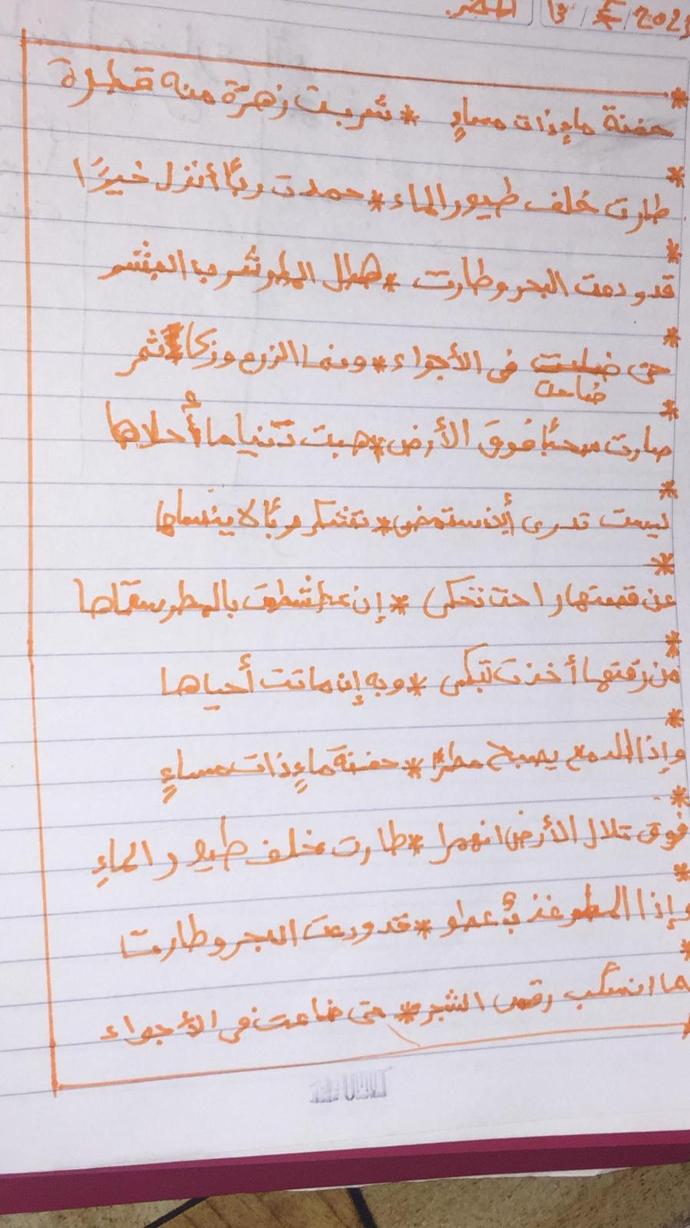 2023 / 4 / 13 المطر
* حفنة ماءٍ ذات مساءٍ * شربت زهرة منه قطرة
* طارت خلف طيور الماء * حمدت ربًا أنزل خيرًا
* قد ودعت البحر وطارت * هطل المطر شرب البشر
* حتى ضاعت في الأجواء * ونما الزرع وزكا ثمر
* صارت سحبًا فوق الأرض * هبت دنيا ما أحلاها
* ليست تدري أين ستمضي * تشكر ربًا لا ينساها
* عن قصتها راحت تحكي * إن عطشت بالمطر سقاها
* من رقتها أخذت تبكي * وبه إن ماتت أحياها
* وإذا الدمع يصبح مطرًا * حفنة ماءٍ ذات مساءٍ
* فوق تلال الأرض انهمرا * طارت خلف طيور الماءِ
* وإذا المطر عطر * قد ودعت البحر وطارت
* انسكب رقص الشجر * حتى ضاعت في الأجواء